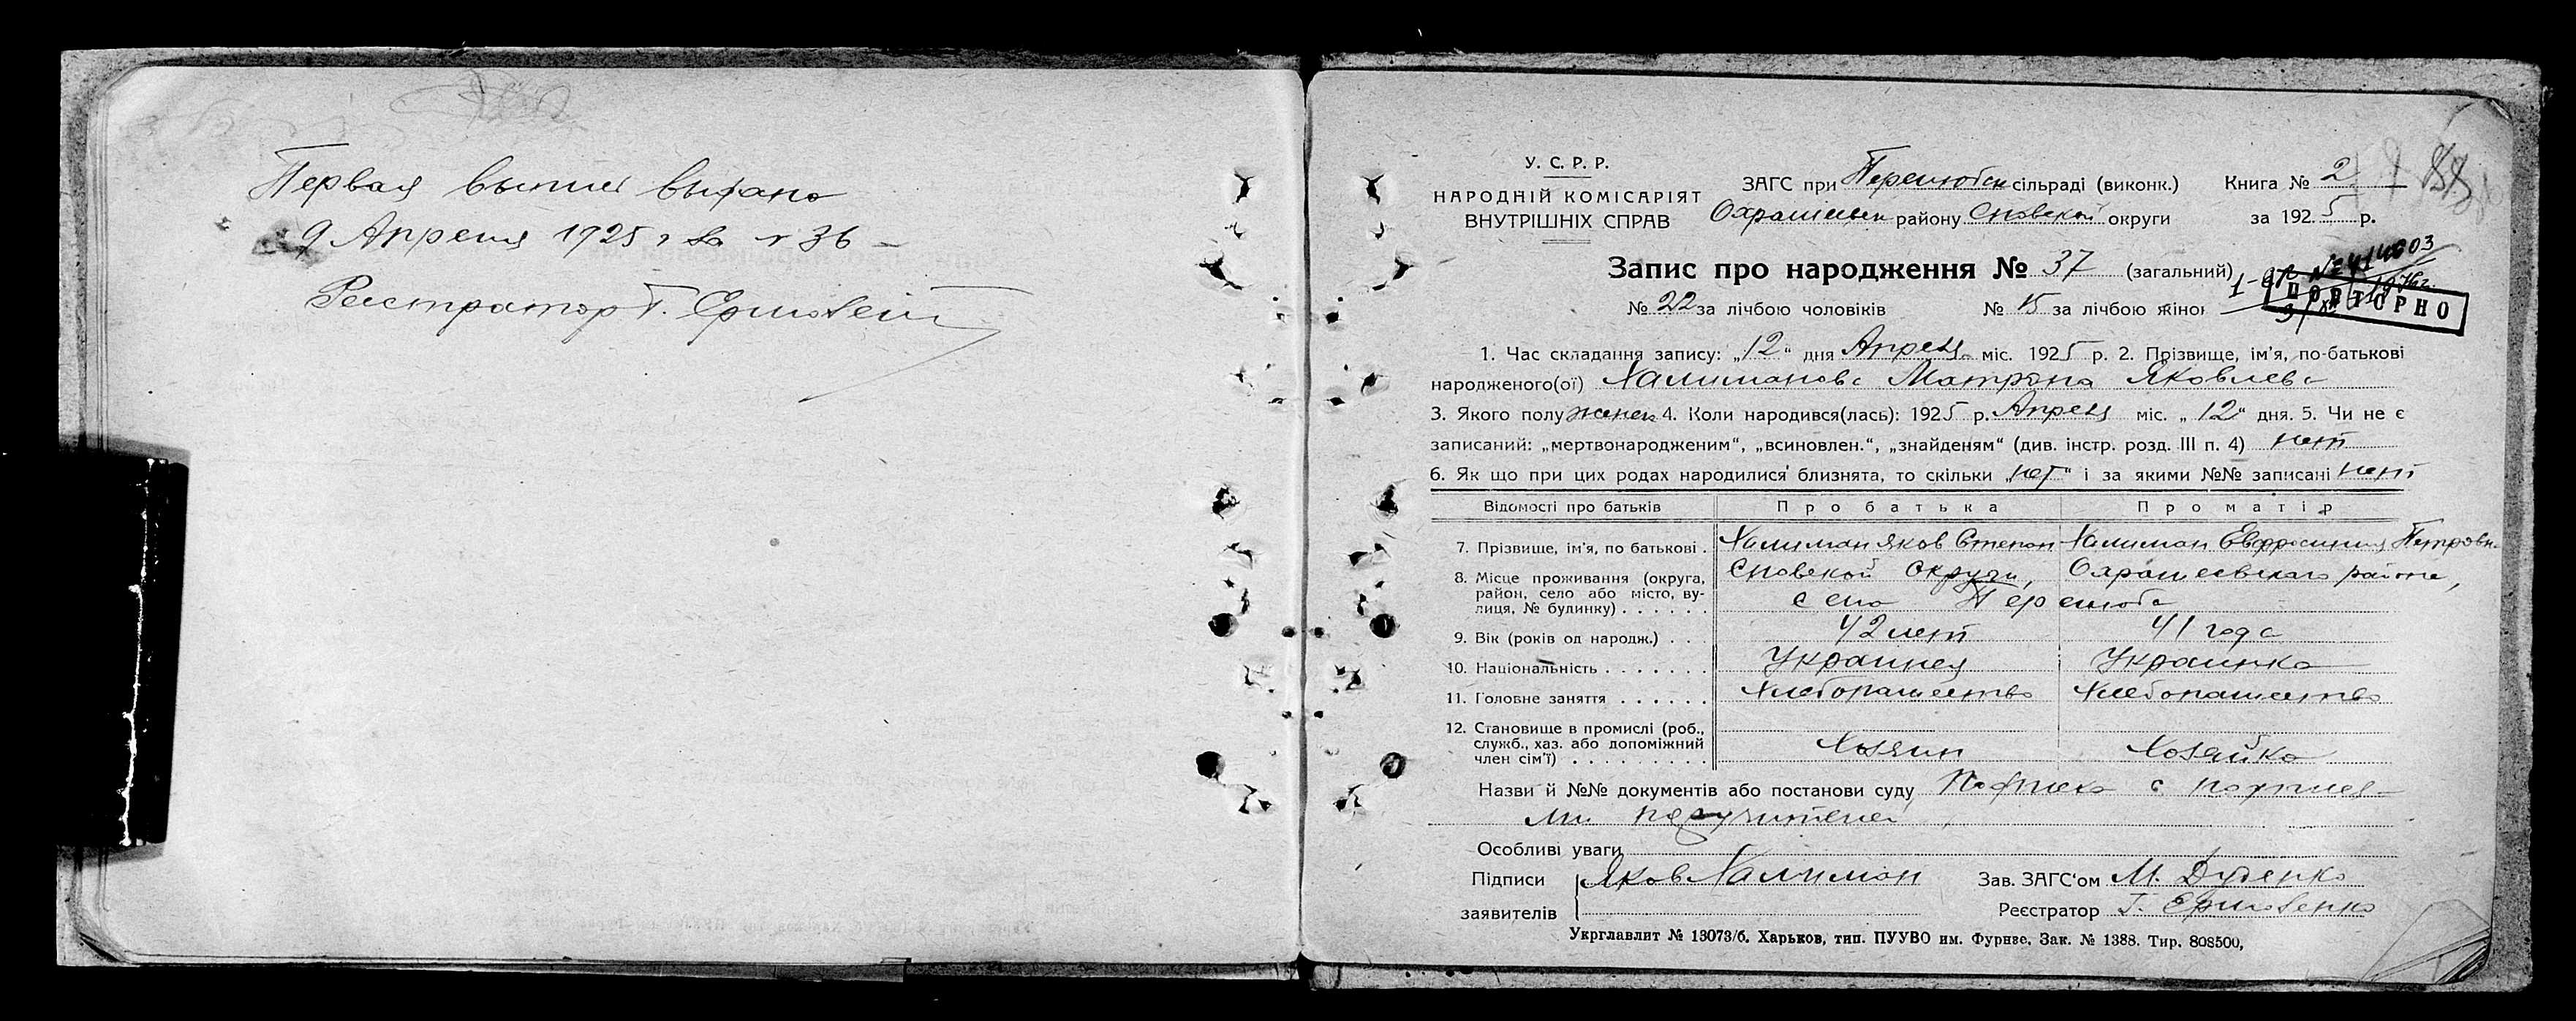 Первая выпись выдано
9 Апреля 1925 г за № 36
Регистратор Г.
У. С. Р. Р.
НАРОДНІЙ КОМІСАРІЯТ
ВНУТРІШНІХ СПРАВ
ЗАГС при Перелюбск сільраді (виконк.)
Охрамиевск району Сновской округи
Книга № 2
за 1925 р.
88
Запис про народження № 37 (загальний)
№ 22 за лічбою чоловіків № 15 за лічбою жінок
ПОВТОРНО
1. Час складання запису: „12“ дня Апреля міс. 1925 р. 2. Прізвище, ім'я, по-батькові
народженого(ої) Халиманова Матрона Яковлева
3. Якого полу женск 4. Коли народився(лась): 1925 р. Апреля міс. „12“ дня. 5. Чи не є
записаний: „мертвонародженим“, „всиновлен.“, „знайденям“ (див. інстр. розд. III п. 4) нет
6. Як що при цих родах народилися близнята, то скільки „нет“ і за якими №№ записані нет
Відомості про батьків Про батька Про матір
7. Прізвище, ім'я, по батькові . Халиман Яков Степан Халиман Евфросиния Петровн.
8. Місце проживання (округа, Сновской округи, Охрамиевскаго района,
район, село або місто, ву- село Перелюба
лиця, № будинку) . . . . . .
9. Вік (років од народж.) . . . 42 лет 41 года
10. Національність . . . . . . . Украинец Украинка
11. Головне заняття . . . . . . Хлебопашество Хлебопашество
12. Становище в промислі (роб.,
служб., хаз. або допоміжний Хозяин Хозяйка
член сім'ї) . . . . . . . . .
Назви й №№ документів або постанови суду Подписка с подпися-
ми поручителей
Особливі уваги
Підписи Яков Халиман Зав. ЗАГС'ом М. Дуденко
заявителів Реєстратор Г.
Укрглавлит № 13073/б. Харьков, тип. ПУУВО им. Фрунзе. Зак. № 1388. Тир. 808500,